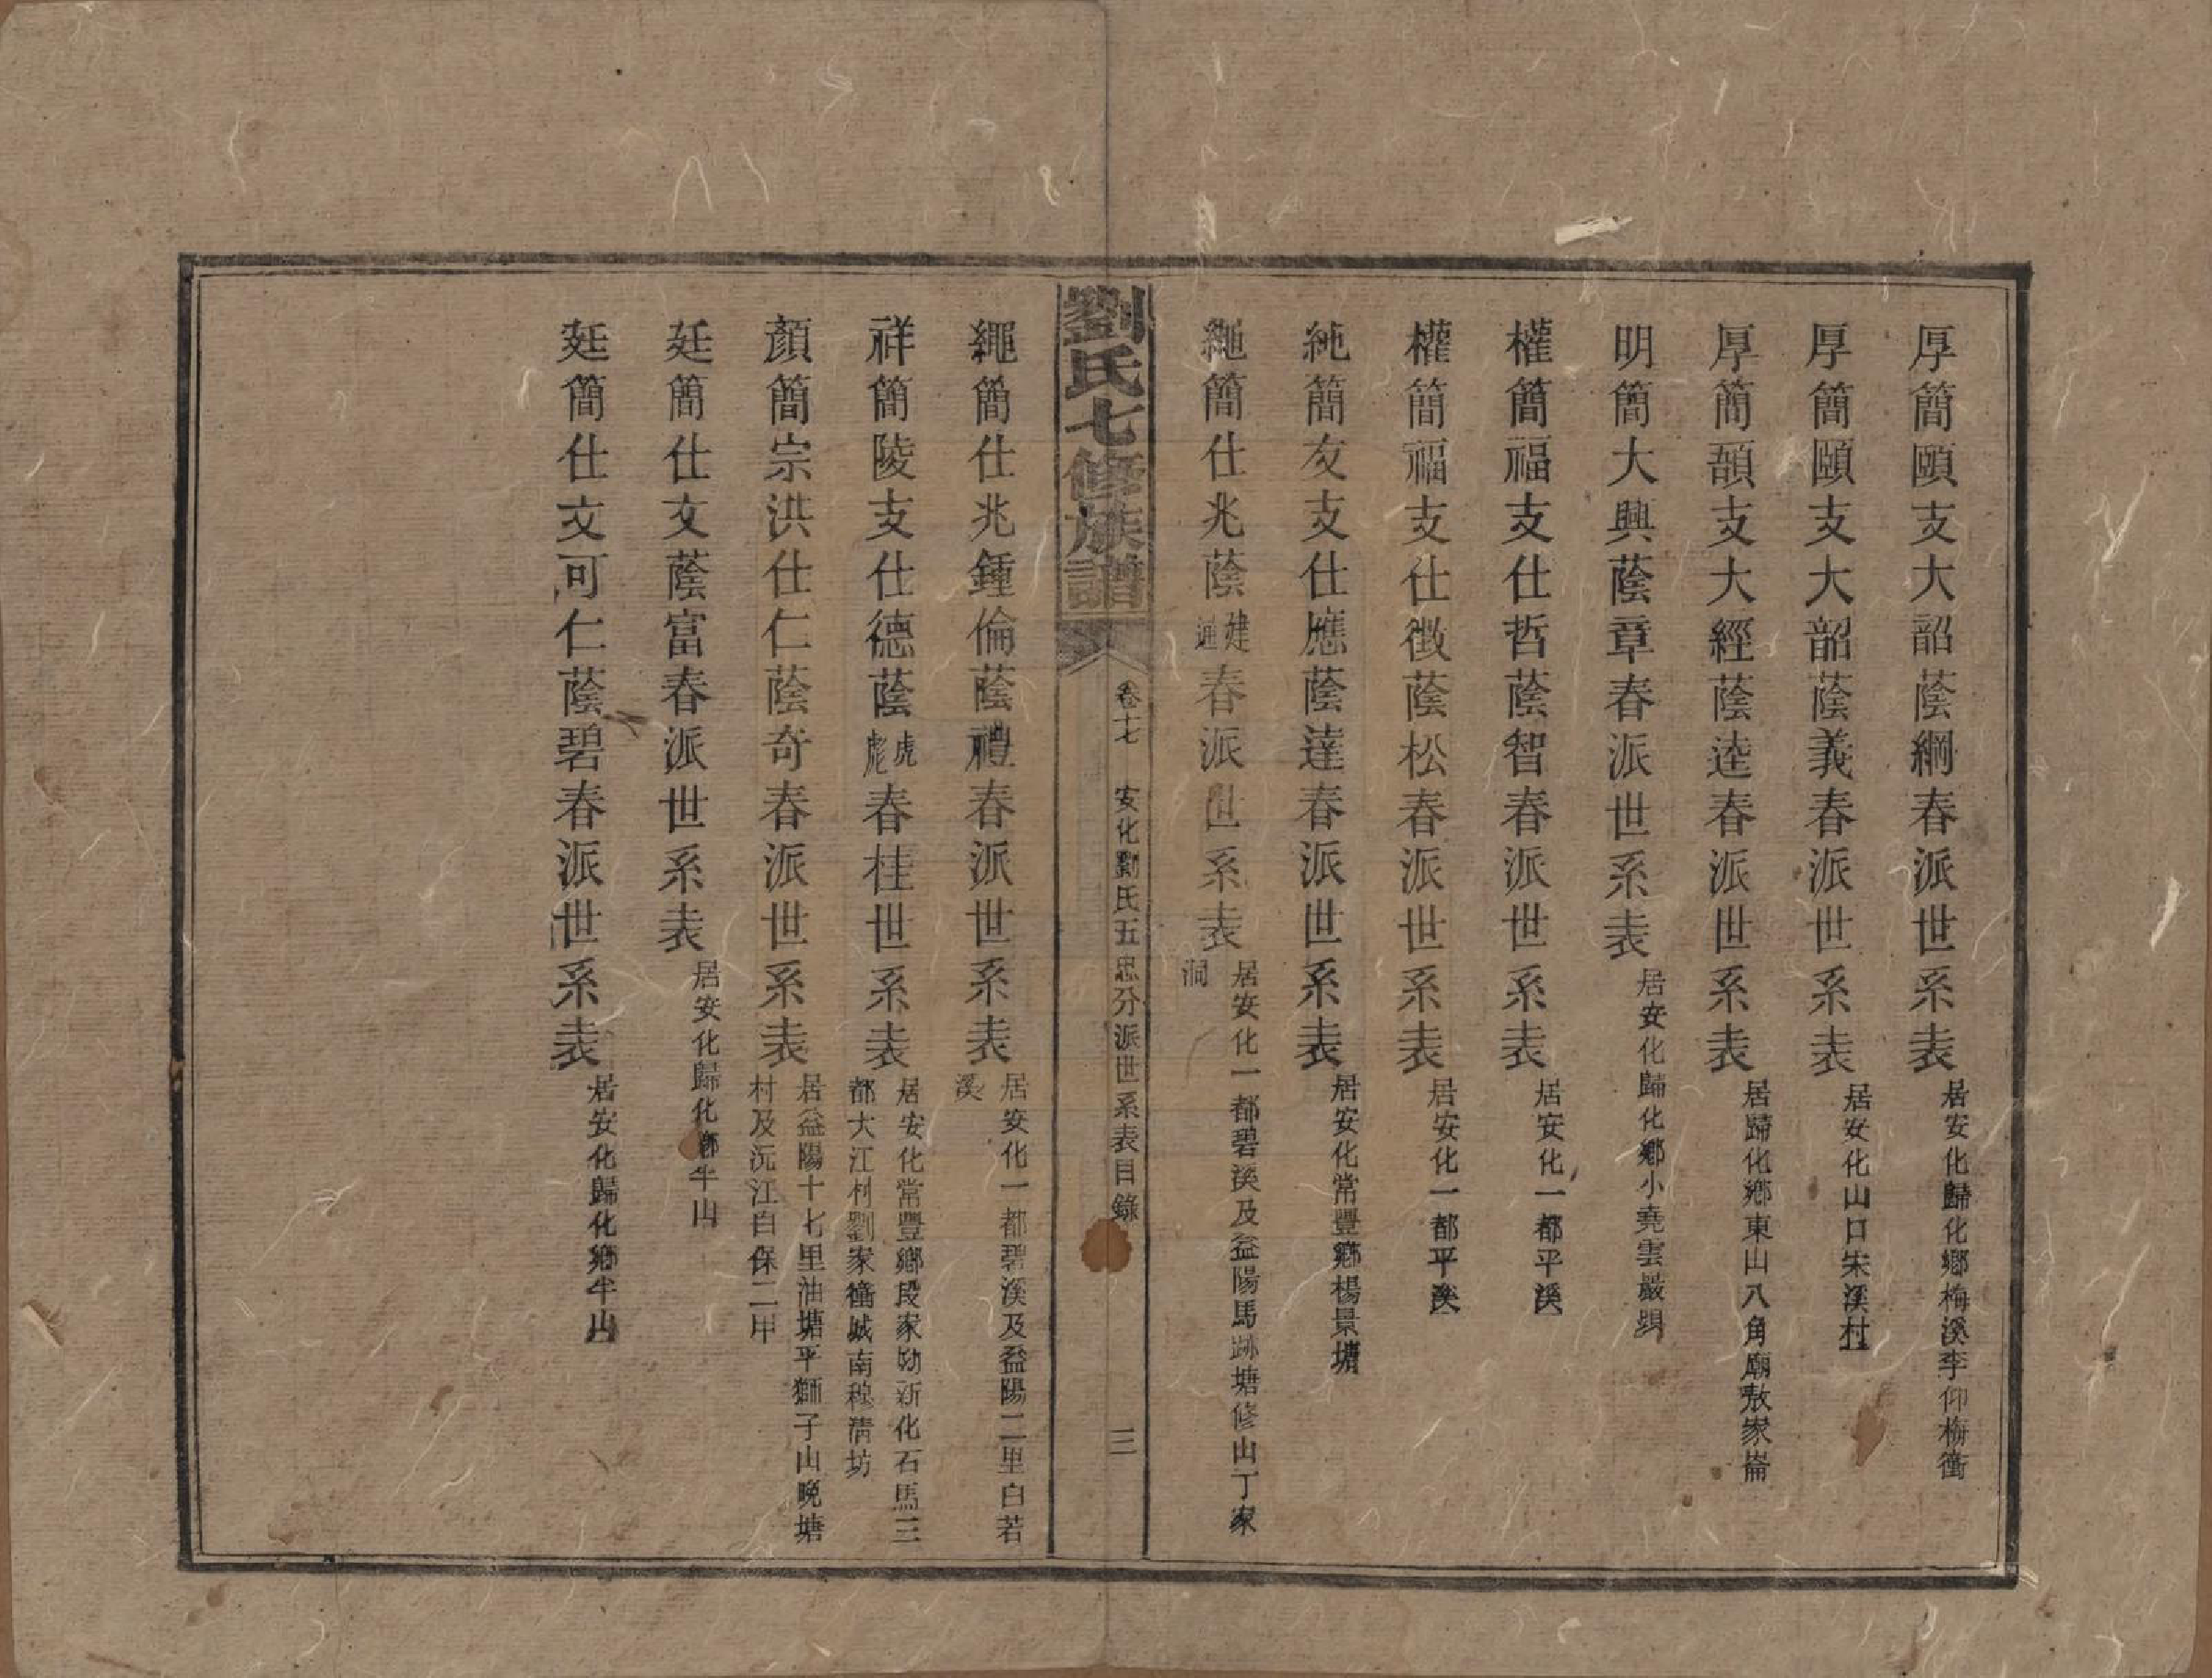 厚簡頤支大韶蔭綱春派世系表 居安化歸化鄉梅溪李仰梅衝
厚簡頤支大韶蔭義春派世系表 居安化山口朱溪村
厚簡頢支大經蔭逵春派世系表 居歸化鄉東山八角廟敖家崙
明簡大興蔭章春派世系表 居安化歸化鄉小堯雲巖㘭
權簡福支仕哲蔭智春派世系表 居安化一都平溪
權簡福支仕徴蔭松春派世系表 居安化一都平溪
純簡友支仕應蔭達春派世系表 居安化常豐鄉楊景塘
繩簡仕兆蔭建通春派世系表 居安化一都碧溪及益陽馬跡塘修山丁家洞
劉氏七修族譜 卷十七 安化劉氏五忠分派世系表目錄 三
繩簡仕兆鍾倫蔭禮春派世系表 居安化一都碧溪及益陽二里白若溪
祥簡陵支仕德蔭虎彪春桂世系表 居安化常豐鄉段家㘭新化石馬三都大江村劉家衝城南穆清坊
顏簡宗洪仕仁蔭奇春派世系表 居益陽十七里油塘平獅子山晚塘村及沅江白保二甲
廷簡仕文蔭富春派世系表 居安化歸化鄉半山
廷簡仕文可仁蔭碧春派世系表 居安化歸化鄉半山